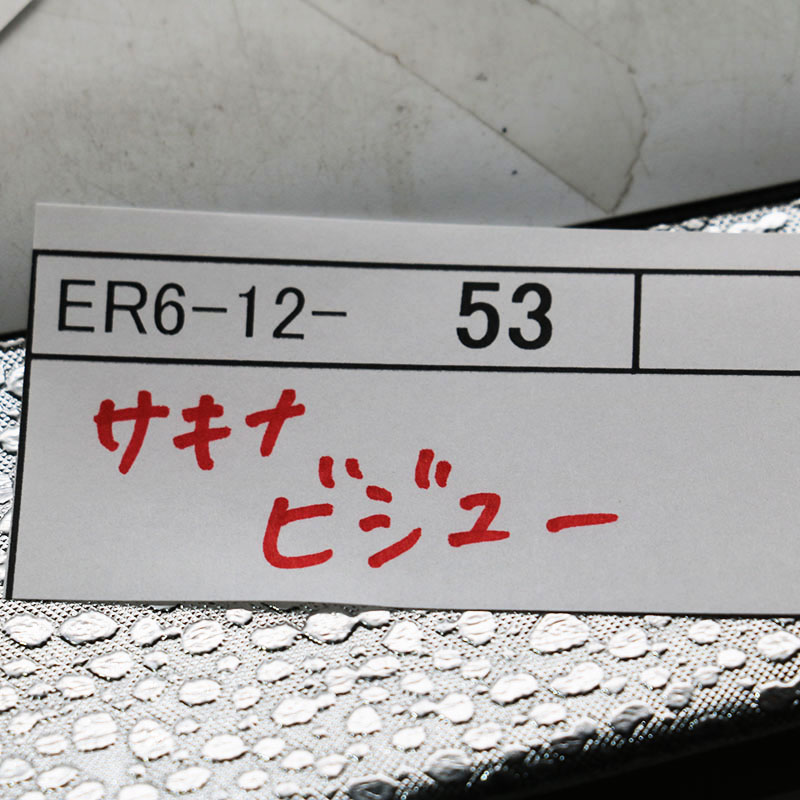 ER6-12- 53
サキナ
ビジュー